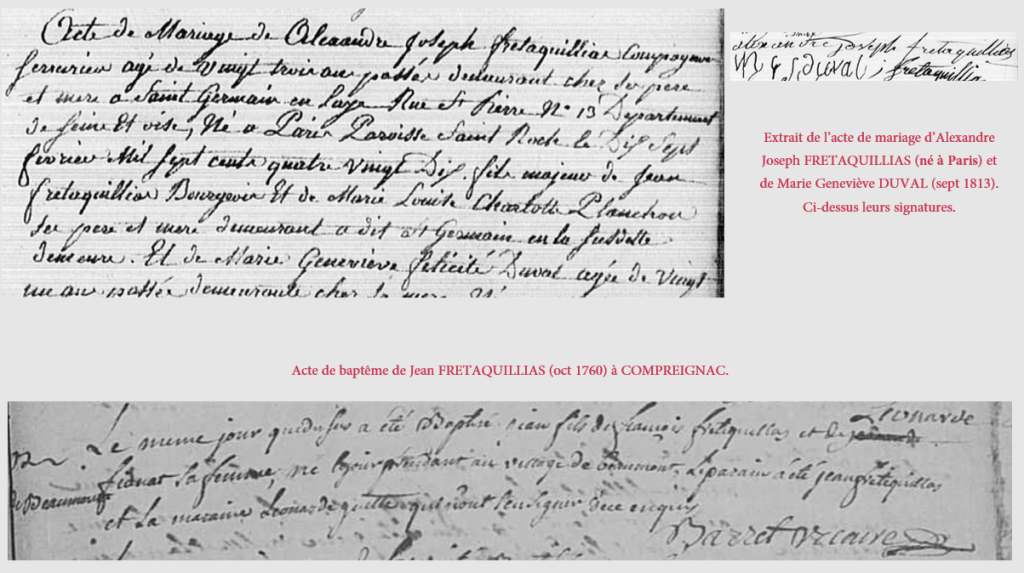 Acte de Mariage de Alexandre Joseph fretaquillias Compagnon
Serrurier agé de Vingt trois ans passée demeurant chez ses pere
et mere a Saint Germain en Laye Rue St Pierre N° 13 Departement
de Seine Et oise, Né a Paris Paroisse Saint Roch le Dix Sept
fevrier Mil Sept cents quatre Vingt Dix. fils majeur de Jean
fretaquillias Bourgeois Et de Marie Louise Charlotte Planchon
Ses pere et mere demeurant a dit St Germain en la susditte
demeure. Et de Marie Geneviève felicité Duval agée de Vingt
un an passée demeurante chez sa mere
alexandre joseph fretaquillias
M G f Duval fretaquillia
Extrait de l'acte de mariage d'Alexandre
Joseph FRETAQUILLIAS (né à Paris) et
de Marie Geneviève DUVAL (sept 1813).
Ci-dessus leurs signatures.
Acte de baptême de Jean FRETAQUILLIAS (oct 1760) à COMPREIGNAC.
Leonarde
Le meme jour que dessus a été Baptisé jean fils de françois fretiquillas et de
de Beaumont
sa femme, né le jour precedant au village de beaumont. Le parain a été jean fretiquillas
et la maraine Leonarde qui n'ont seu signer de ce enquis
Barret vicaire